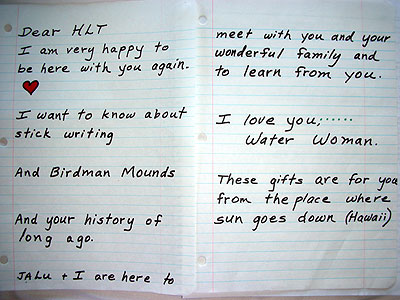 Dear HLT
I am very happy to
be here with you again.
I want to know about
stick writing
And Birdman Mounds
And your history of
long ago.
JALu + I are here to
meet with you and your
wonderful family and
to learn from you.
I love you;.....
Water Woman.
These gifts are for you
from the place where
sun goes down (Hawaii)